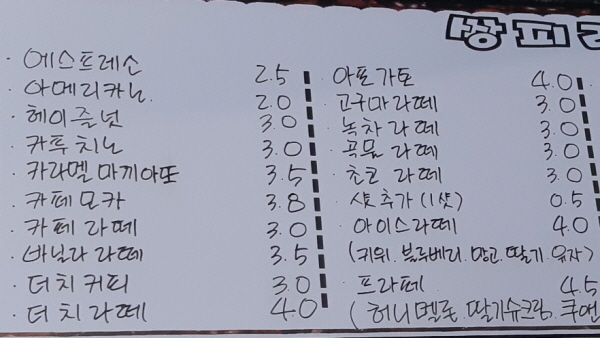 쌍피리
· 에스프레소 2.5
· 아메리카노 2.0
· 헤이즐넛 3.0
· 카푸치노 3.0
· 카라멜 마끼아또 3.5
· 카페 모카 3.8
· 카페 라떼 3.0
· 바닐라 라떼 3.5
· 더치 커피 3.0
· 더치 라떼 4.0
· 아포가토 4.0
· 고구마 라떼 3.0
· 녹차 라떼 3.0
· 곡물 라떼 3.0
· 초코 라떼 3.0
· 샷 추가 (1샷) 0.5
· 아이스라떼 4.0
(키위. 블루베리. 망고. 딸기. 유자)
· 프라페 4.5
(허니멜로. 딸기슈크림. 쿠앤